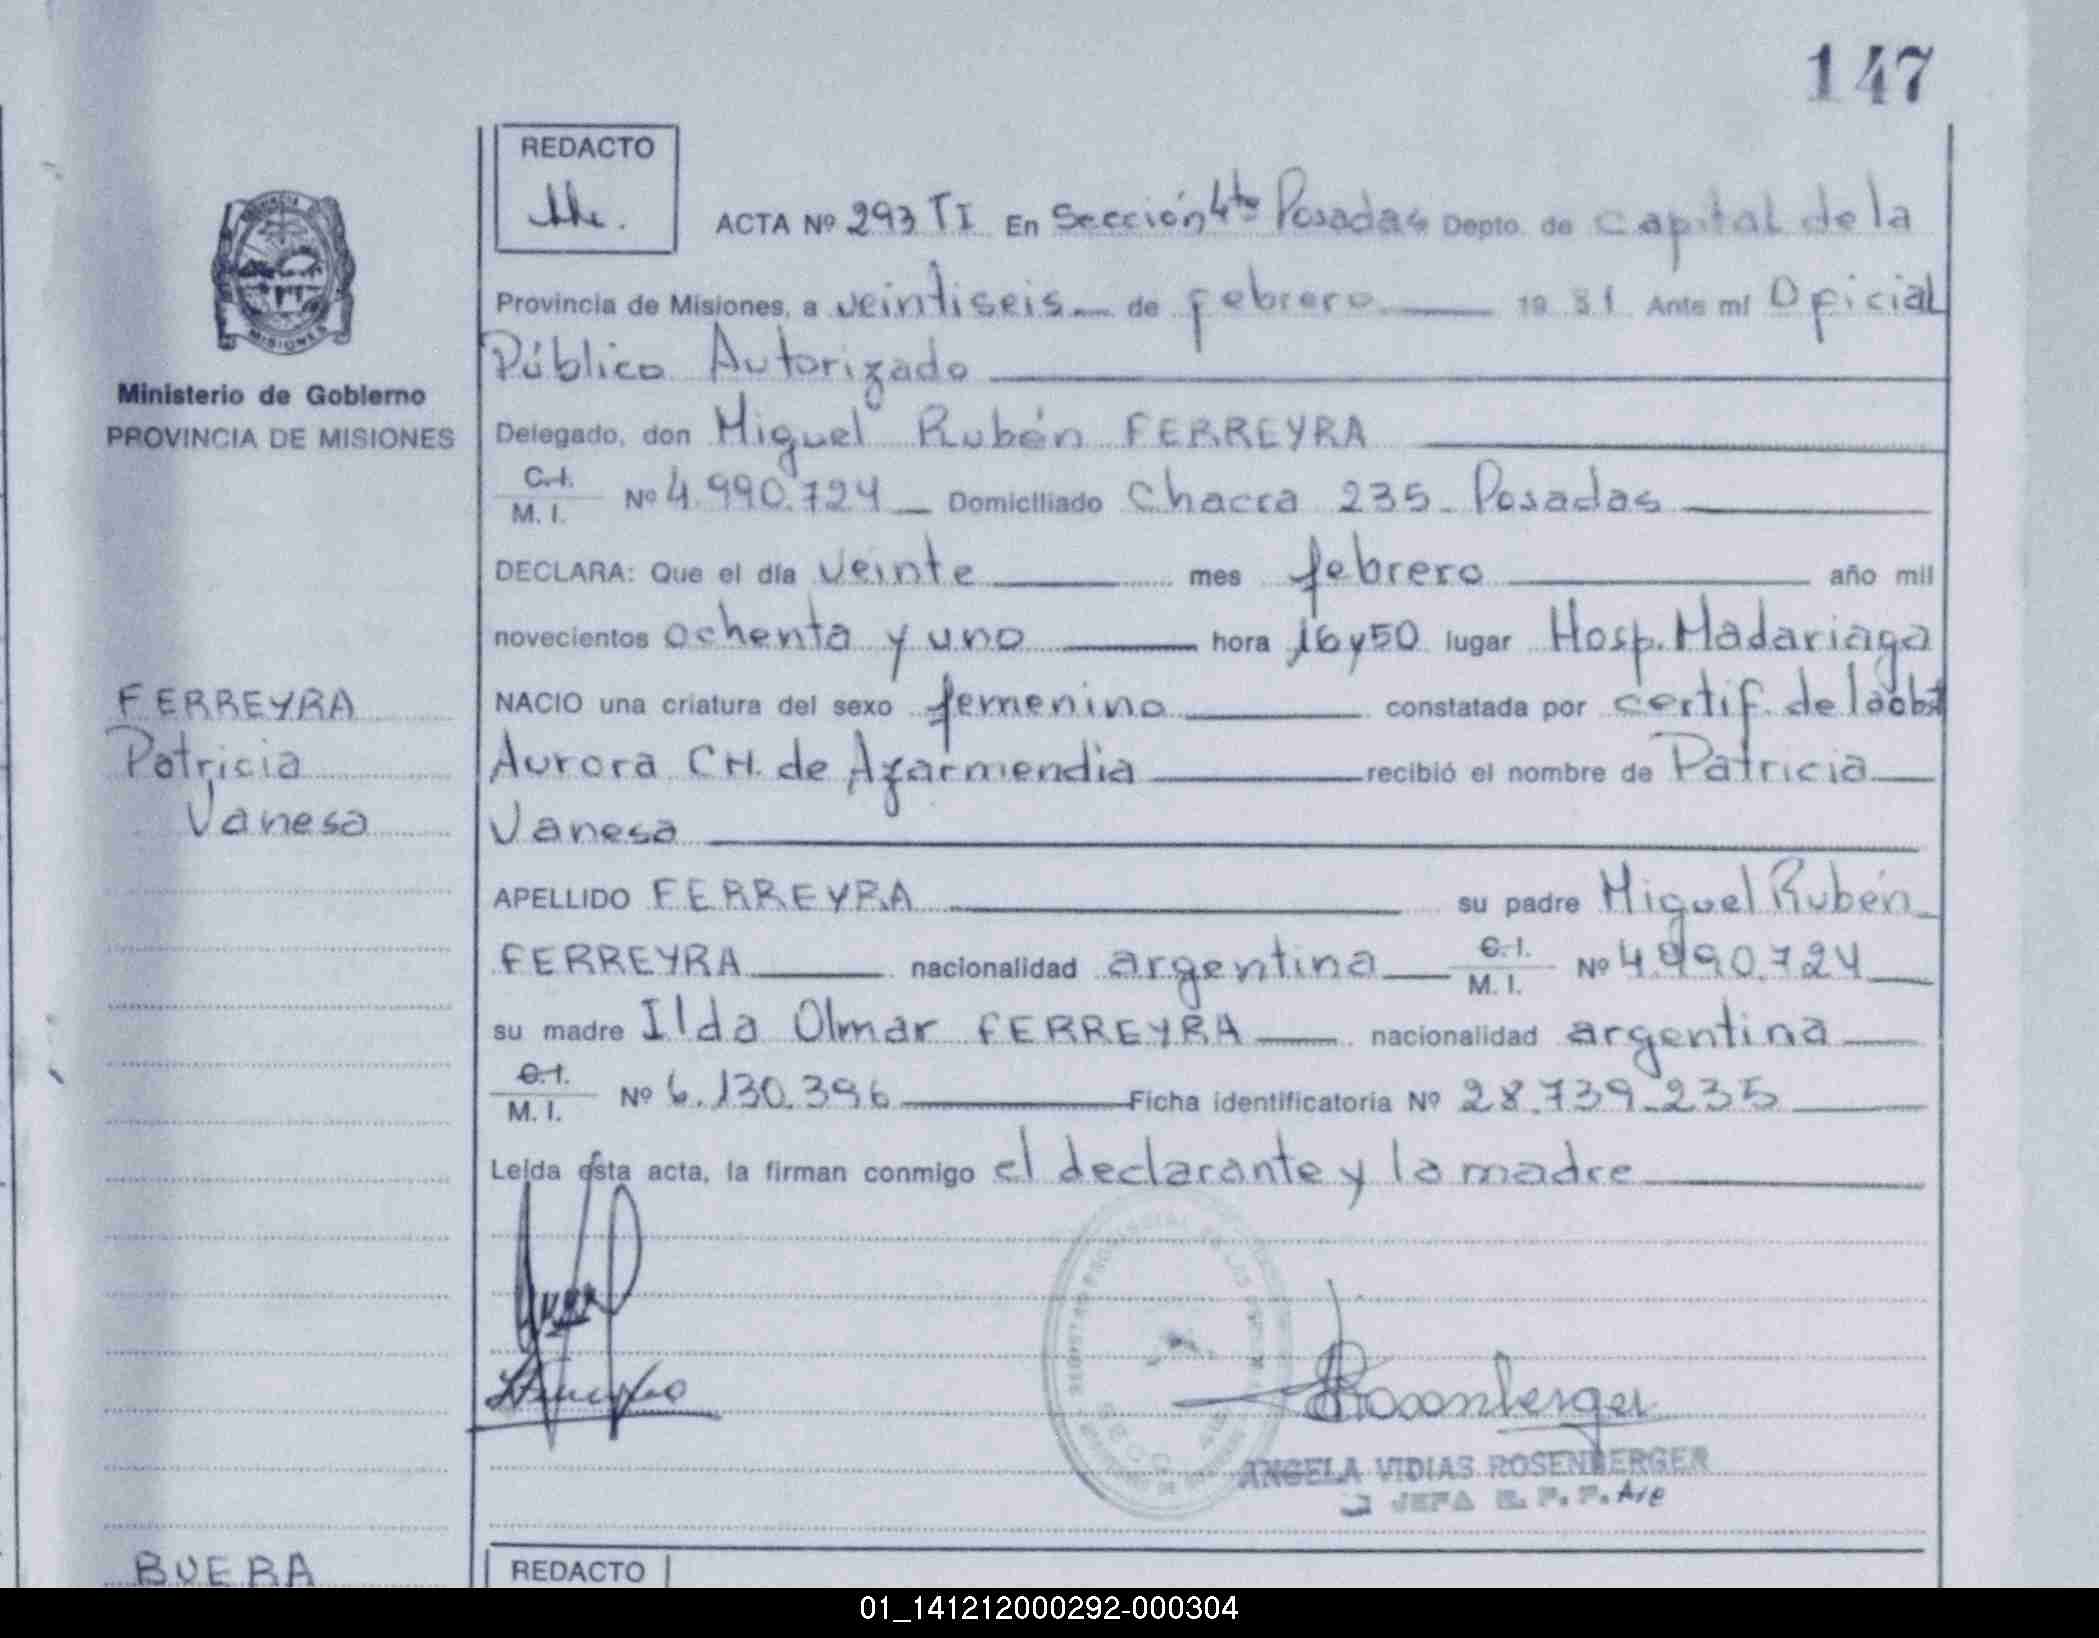 147
REDACTO
ACTA Nº 293 TI En Sección 4ta Posadas Depto. de Capital de la
Provincia de Misiones, a veintiseis de febrero 19 81 Ante mí Oficial
Público Autorizado
Ministerio de Gobierno
PROVINCIA DE MISIONES
Delegado, don Miguel Rubén FERREYRA
C.I.
M. I. Nº 4.990.724 Domiciliado Chacra 235 - Posadas
DECLARA: Que el día veinte mes febrero año mil
novecientos ochenta y uno hora 16 y 50 lugar Hosp. Madariaga
FERREYRA
Patricia
Vanesa
NACIO una criatura del sexo femenino constatada por certif. de la obst
Aurora CH. de Azarmendia recibió el nombre de Patricia
Vanesa
APELLIDO FERREYRA su padre Miguel Rubén
FERREYRA nacionalidad argentina C.I. M. I. Nº 4.990.724
su madre Ilda Olmar FERREYRA nacionalidad argentina
C.I.
M. I. Nº 6.130.396 Ficha identificatoria Nº 28.739.235
Leída esta acta, la firman conmigo el declarante y la madre
Rosenberger
ANGELA VIDIAS ROSENBERGER
JEFA R. P. P.
BUERA
REDACTO
01_141212000292-000304